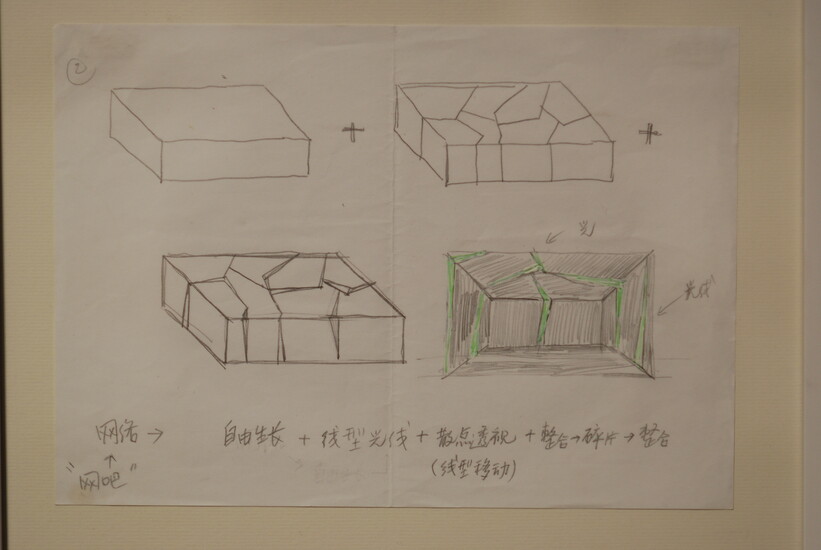 2
+
+
光
光线
网络→ 自由生长 + 线型光线 + 散点透视 + 整合→碎片→整合
↑ (线型移动)
"网吧"